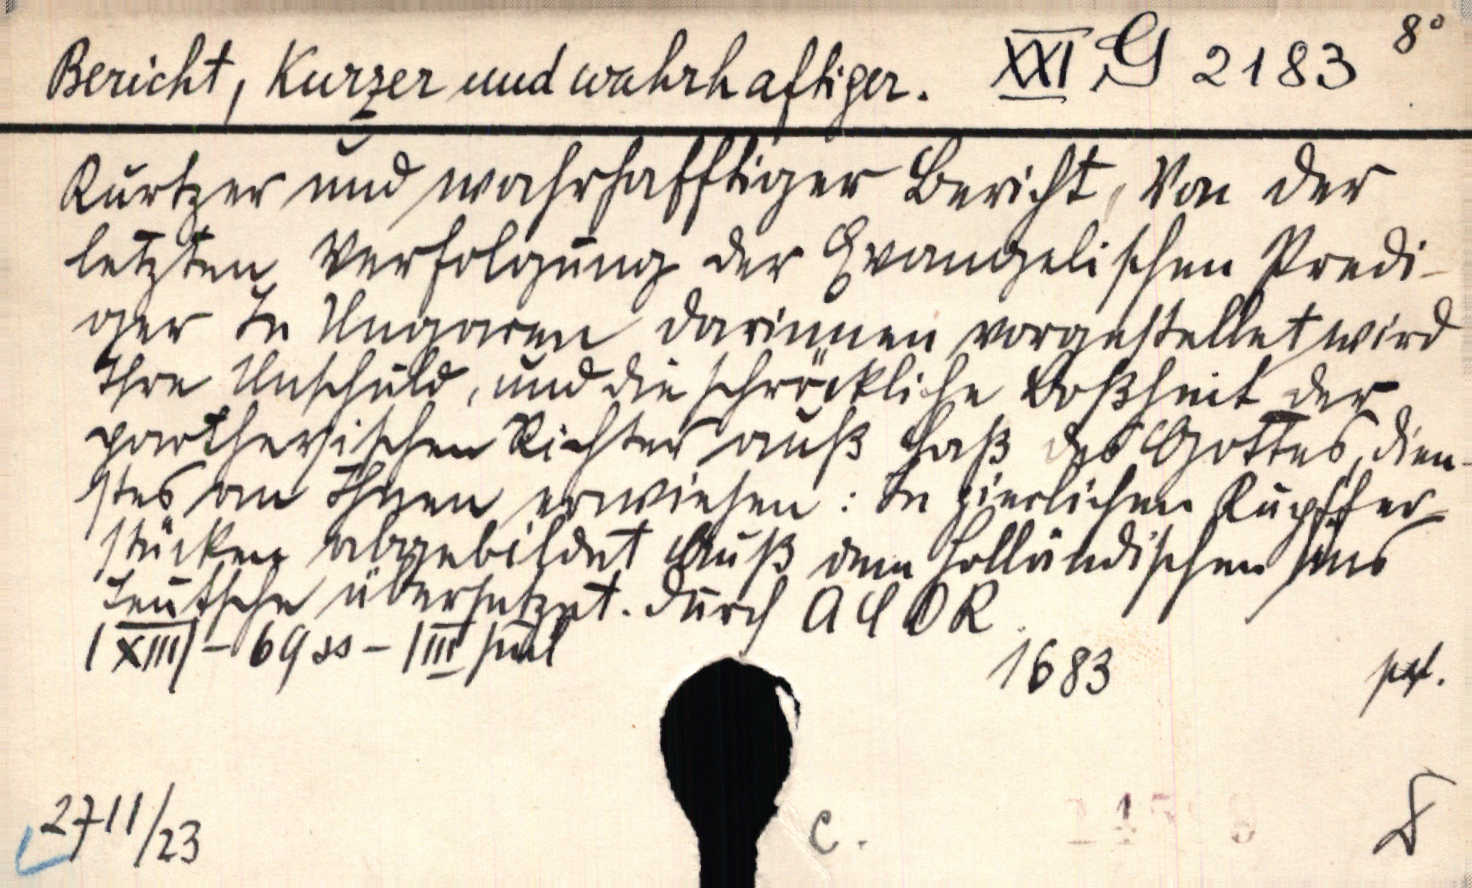 Bericht, Kurzer und wahrhaftiger. XXI G 2183 8°
Kurtzer und wahrhafftiger Bericht, Von der
letzten Verfolgung der Evangelischen Predi-
ger In Ungaren darinnen vorgestellet wird
Ihre Unschuld, und die schröckliche Boßheit der
partheyischen Richter auß Haß des Gottes dien-
stes an Ihnen erwiesen: In zierlichen Kupffer-
stücken abgebildet Auß dem Holländischen ins
Teutsche übersetzet. durch A C D R
|XIII|- 69 ss - |III
1683
2711/23
C.